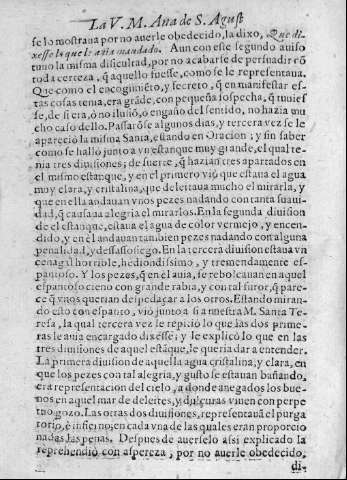 La V. M. Ana de S. Agust
se lo mostraua por no auerle obedecido, la dixo, Que di-
xesse lo que le auia mandado. Aun con este segundo auiso
tuuo la misma dificultad, por no acabarse de persuadir cõ
toda certeza, q̃ aquello fuesse, como se le representaua.
Que como el encogimiẽto, y secreto, q̃ en manifestar es-
tas cosas tenia, era grãde, con pequeña sospecha, q̃ tuuies-
se, de si era, ó no ilusió, ó engaño del sentido, no hazia mu
cho caso dello. Passarõse algunos dias, y tercera vez se le
apareció la misma Santa, estando en Oracion; y sin saber
como se halló junto a vn estanque muy grande, el qual te-
nia tres diuisiones; de suerte, q̃ hazian tres apartados en
el mismo estanque, y en el primero vió que estaua el agua
muy clara, y cristalina, que deleitaua mucho el mirarla, y
que en ella andauan vnos pezes nadando con tanta suaui-
dad, q̃ causaua alegria el mirarlos. En la segunda diuision
de el estanque, estaua el agua de color vermejo, y encen-
dido, y en el andauan tambien pezes nadando con alguna
penalidad, y desassosiego. En la tercera diuision estaua vn
cenagal horrible, hediondissimo, y tremendamente es-
pantoso. Y los pezes, q̃ en el auia, se rebolcauan en aquel
espantoso cieno con grande rabia, y con tal furor, q̃ pare-
ce q̃ vnos querian despedaçar a los otros. Estando miran-
do esto con espanto, vió junto a si a nuestra M. Santa Te-
resa, la qual tercera vez le repitió lo que las dos prime-
ras le auia encargado dixesse; y le explicó lo que en las
tres diuisiones de aquel estãque, le queria dar a entender.
La primera diuision de aquella agua cristalina, y clara, en
que los pezes con tal alegria, y gusto se estauan bañando,
era representacion del cielo, a donde anegados los bue-
nos en aquel mar de deleites, y dulçuras viuen con perpe
tuo gozo. Las otras dos diuisiones, representauã el purga
torio, è infierno; en cada vna de las quales eran proporcio
nadas las penas. Despues de auerselo assi explicado la
reprehendió con aspereza, por no auerle obedecido.
di-